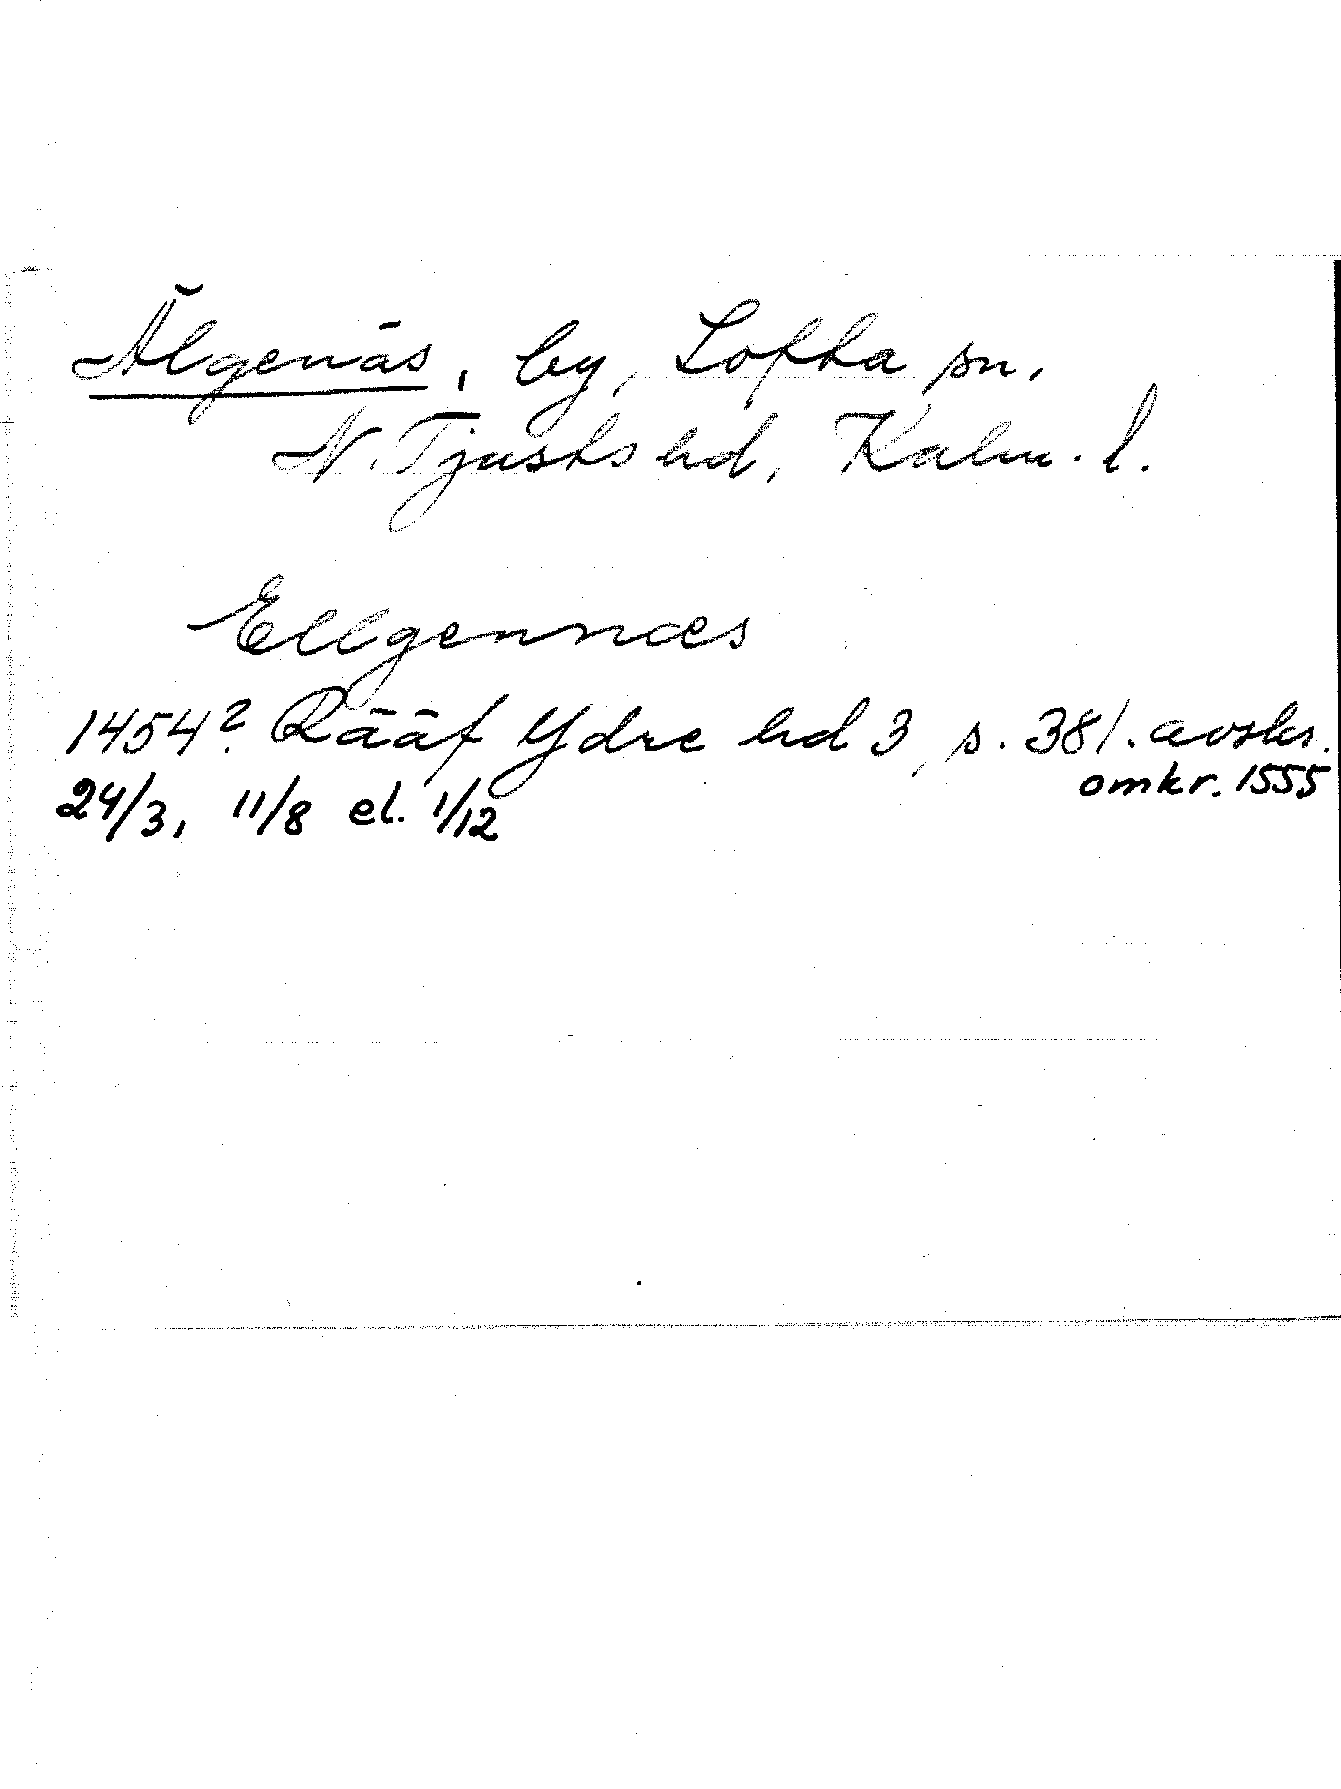 Älgenäs, by, Lofta sn,
N. Tjusts hd, Kalm. l.
Ellgennæs
1454? Rääf Ydre hd 3, s. 381. avskr.
omkr. 1555
24/3, 11/8 el. 1/12